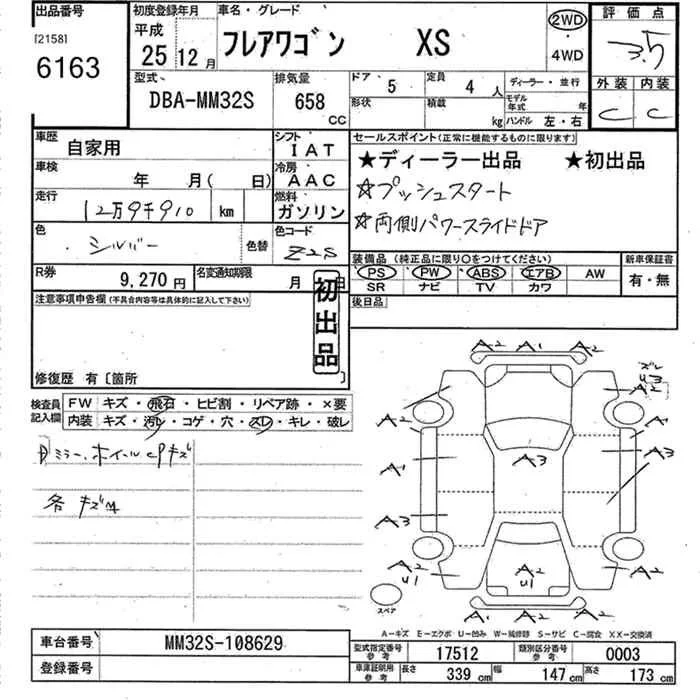 出品番号
[2158]
6163
初度登録年月
平成
25 12月
車名・グレード
フレアワゴン XS
2WD
・
4WD
評価点
3.5
外装 内装
C C
型式
DBA-MM32S
排気量
658 CC
ドア 5
定員 4 人
形状
積載 kg
ディーラー・並行
モデル年式 年
ハンドル 左・右
車歴
自家用
シフト
IAT
車検
年 月( 日)
冷房
AAC
走行
12万9千910 km
燃料
ガソリン
色
シルバー
色替
色コード
Z2S
R券
9,270円
名変通知期限
月 日
セールスポイント(正常に機能するものに限ります)
★ディーラー出品 ★初出品
☆プッシュスタート
☆両側パワースライドドア
装備品 (純正品に限り○をつけてください)
PS PW ABS エアB AW
SR ナビ TV カワ
新車保証書
有・無
後日品
注意事項申告欄(不具合内容等は具体的に記入して下さい)
初出品
修復歴 有〔箇所 〕
検査員記入欄
FW キズ・飛石・ヒビ割・リペア跡・×要
内装 キズ・汚レ・コゲ・穴・スレ・キレ・破レ
ミラー、ホイールcPキズ
各キズ
A2 A1 A2
A2
ズレ
U3
A2
A2
A1
A3
A1
A3
A3
A2
U1
A2
U1
A2
A2 A2
スペア
A－キズ E－エクボ U－凹み W－補修跡 S－サビ C－腐食 XX－交換済
車台番号
MM32S-108629
登録番号
型式指定番号 参考
17512
類別区分番号 参考
0003
車庫証明用 参考
長さ 339 cm
幅 147 cm
高さ 173 cm